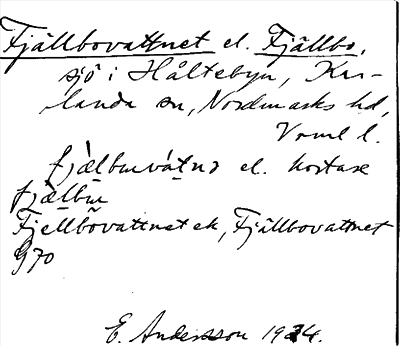 Fjällbovattnet el. Fjällbo,
sjö i Håltebyn, Kar-
landa sn, Nordmarks hd,
Vrml l.
fjælbmvátnə el. kortare
fjælbm
Fjellbovattnet ek, Fjällbovattnet
G 70
E. Andersson 1924.